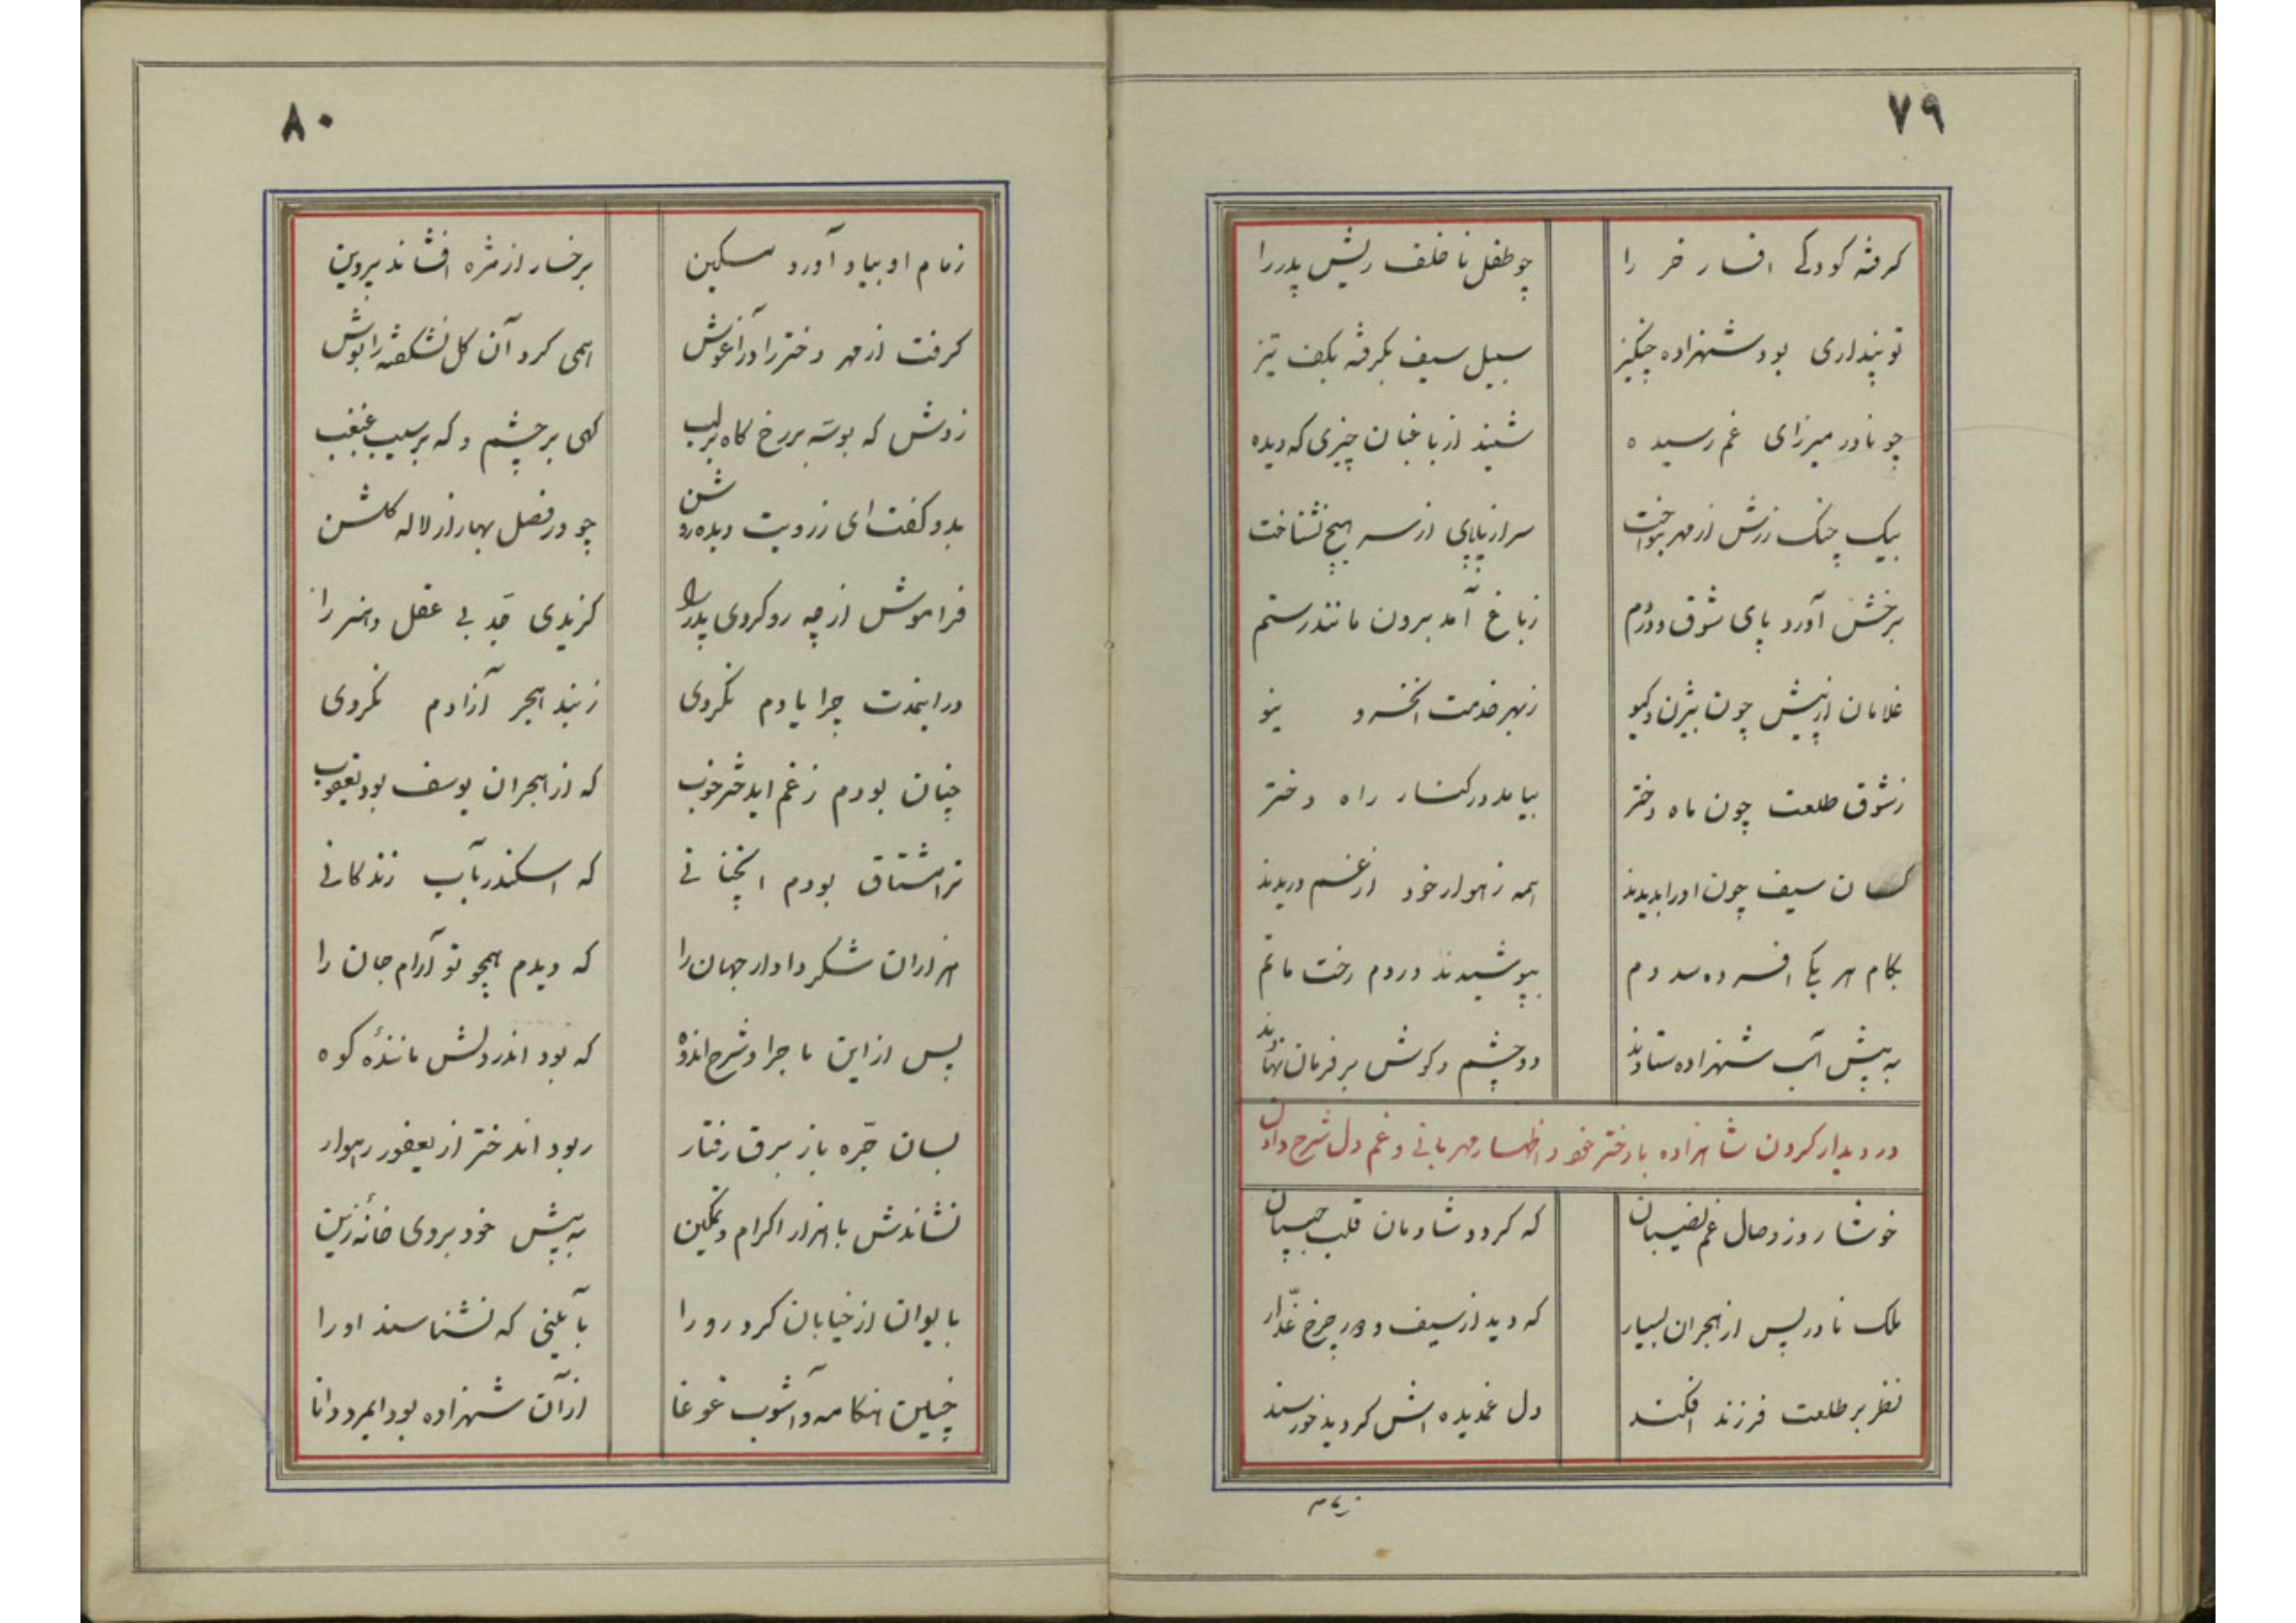 ۷۹
گرفته کودکی افسار خر را چو طفل ناخلف ریش پدر را
تو پنداری بود شهزاده چنگیز سبیل سیف بگرفته بکف تیز
چو نادر میرزای غم رسیده شنید از باغبان چیزی که دیده
بیک چنگ زرش از مهر بنواخت سر از پاپای از سر هیچ نشناخت
برخش آورد پای شوق در دم ز باغ آمد برون مانند رستم
غلامان از پیش چون بیژن و گیو ز بهر خدمت آنخسرو نیو
ز شوق طلعت چون ماه دختر بیامد در کنار راه دختر
کسان سیف چون او را بدیدند همه زهوار خود از غم دریدند
بکام هر یکی افسرده شد دم بپوشیدند در دم رخت ماتم
به پیش اسب شهزاده ستادند دو چشم و گوش بر فرمان نهادند
در دیدار کردن شاهزاده با دختر خود و اظهار مهربانی و غم دل شرح دادن
خوشا روز وصال غم نصیبان که گردد شادمان قلب حبیبان
ملک نادر پس از هجران بسیار که دید از سیف و دور چرخ غدّار
نظر بر طلعت فرزند افکند دل غمدیده اش گردید خورسند
زمام
۸۰
زمام او بیاد آورد مسکین برخسار از مژه افشاند پروین
گرفت از مهر دختر را در آغوش همی کرد آن گل نشکفته را بوش
زدش که بوسه بر رخ گاه بر لب گهی بر چشم و که بر سیب غبغب
بدو گفت ای ز رویت دیده روشن چو در فصل بهار از لاله گلشن
فراموش از چه رو کردی پدر را گزیدی جد بی عقل و هنر را
در اینمدت چرا یادم نکردی ز بند هجر آزادم نکردی
چنان بودم ز غم ایدختر خوب که از هجران یوسف بود یعقوب
ترا مشتاق بودم آنچنانی که اسکندر بآب زندگانی
هزاران شکر دادار جهان را که دیدم همچو تو آرام جان را
پس از این ماجرا و شرح اندوه که بود اندر دلش مانندهٔ کوه
بسان جرّه باز برق رفتار ربود اندختر از یعفور رهوار
نشاندش با هزار اکرام و تمکین به پیش خود بروی خانهٔ زین
بایوان از خیابان کرد رو را بآیینی که نشناسند او را
چنین هنگامه و آشوب غوغا از آن شهزاده بود ایمرد دانا